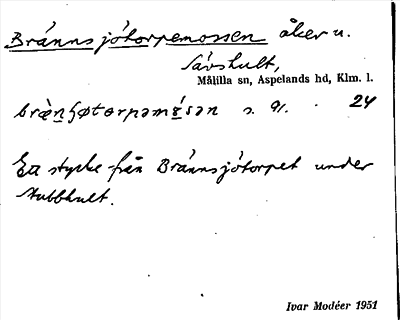 Bránnsjótorpemossen åker u.
Sávshult,
Målilla sn, Aspelands hd, Klm. l.
s. 91. 24
Ett stycke från Bránnsjótorpet under
Stubbhult.
Ivar Modéer 1951